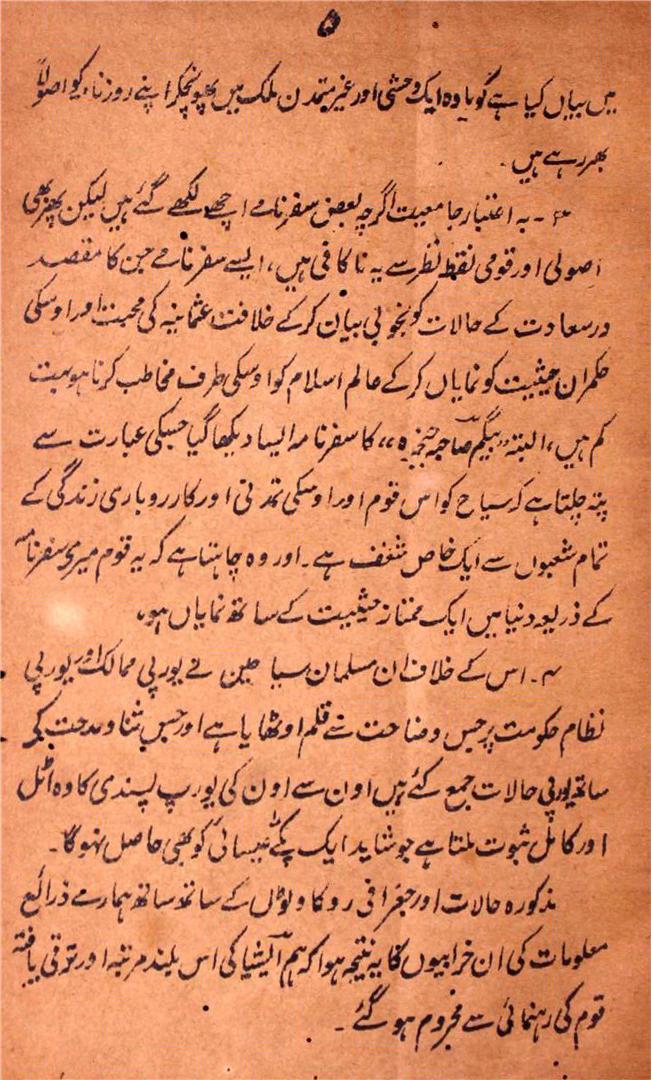 ۵
میں بیاں کیا ہے گویا وہ ایک وحشی اور غیر متمدن ملک میں پھونچکر اپنے روزنامے کو اصولاً
بھر رہے ہیں ۔
۳ ۔ بہ اعتبار جامعیت اگرچہ بعض سفرنامے اچھے لکھے گئے ہیں لیکن پھر بھی
اصولی اور قومی نقطہ نظر سے یہ ناکافی ہیں ، ایسے سفرنامے جن کا مقصد
در سعادت کے حالات کو بخوبی بیان کرکے خلافت عثمانیہ کی محبت اور اوسکی
حکمران حیثیت کو نمایاں کرکے عالم اسلام کو اوسکی طرف مخاطب کرنا ہو بہت
کم ہیں ، البتہ ”بیگم صاحبہ جنجیرہ“ کا سفرنامہ ایسا دیکھا گیا جسکی عبارت سے
پتہ چلتا ہے کہ سیاح کو اس قوم اور اوسکی تمدنی اور کارروباری زندگی کے
تمام شعبوں سے ایک خاص شغف ہے ۔ اور وہ چاہتا ہے کہ یہ قوم میری سفرنامہ
کے ذریعہ دنیا میں ایک ممتاز حیثیت کے ساتھ نمایاں ہو ،
۴ ۔ اس کے خلاف ان مسلمان سیاحین نے یورپی ممالک اور یورپی
نظام حکومت پر جس وضاحت سے قلم اوٹھایا ہے اور جس ثنا و مدحت کی
ساتھ یورپی حالات جمع کئے ہیں اون سے اون کی یورپ پسندی کا وہ اٹل
اور کامل ثبوت ملتا ہے جو شاید ایک پکے عیسائی کو بھی حاصل نہوگا ۔
مذکورہ حالات اور جغرافی روکاوٹوں کے ساتھ ساتھ ہمارے ذرائع
معلومات کی ان خرابیوں کا یہ نتیجہ ہوا کہ ہم ایشیا کی اس بلند مرتبہ اور ترقی یافتہ
قوم کی رہنمائی سے محروم ہو گئے ۔